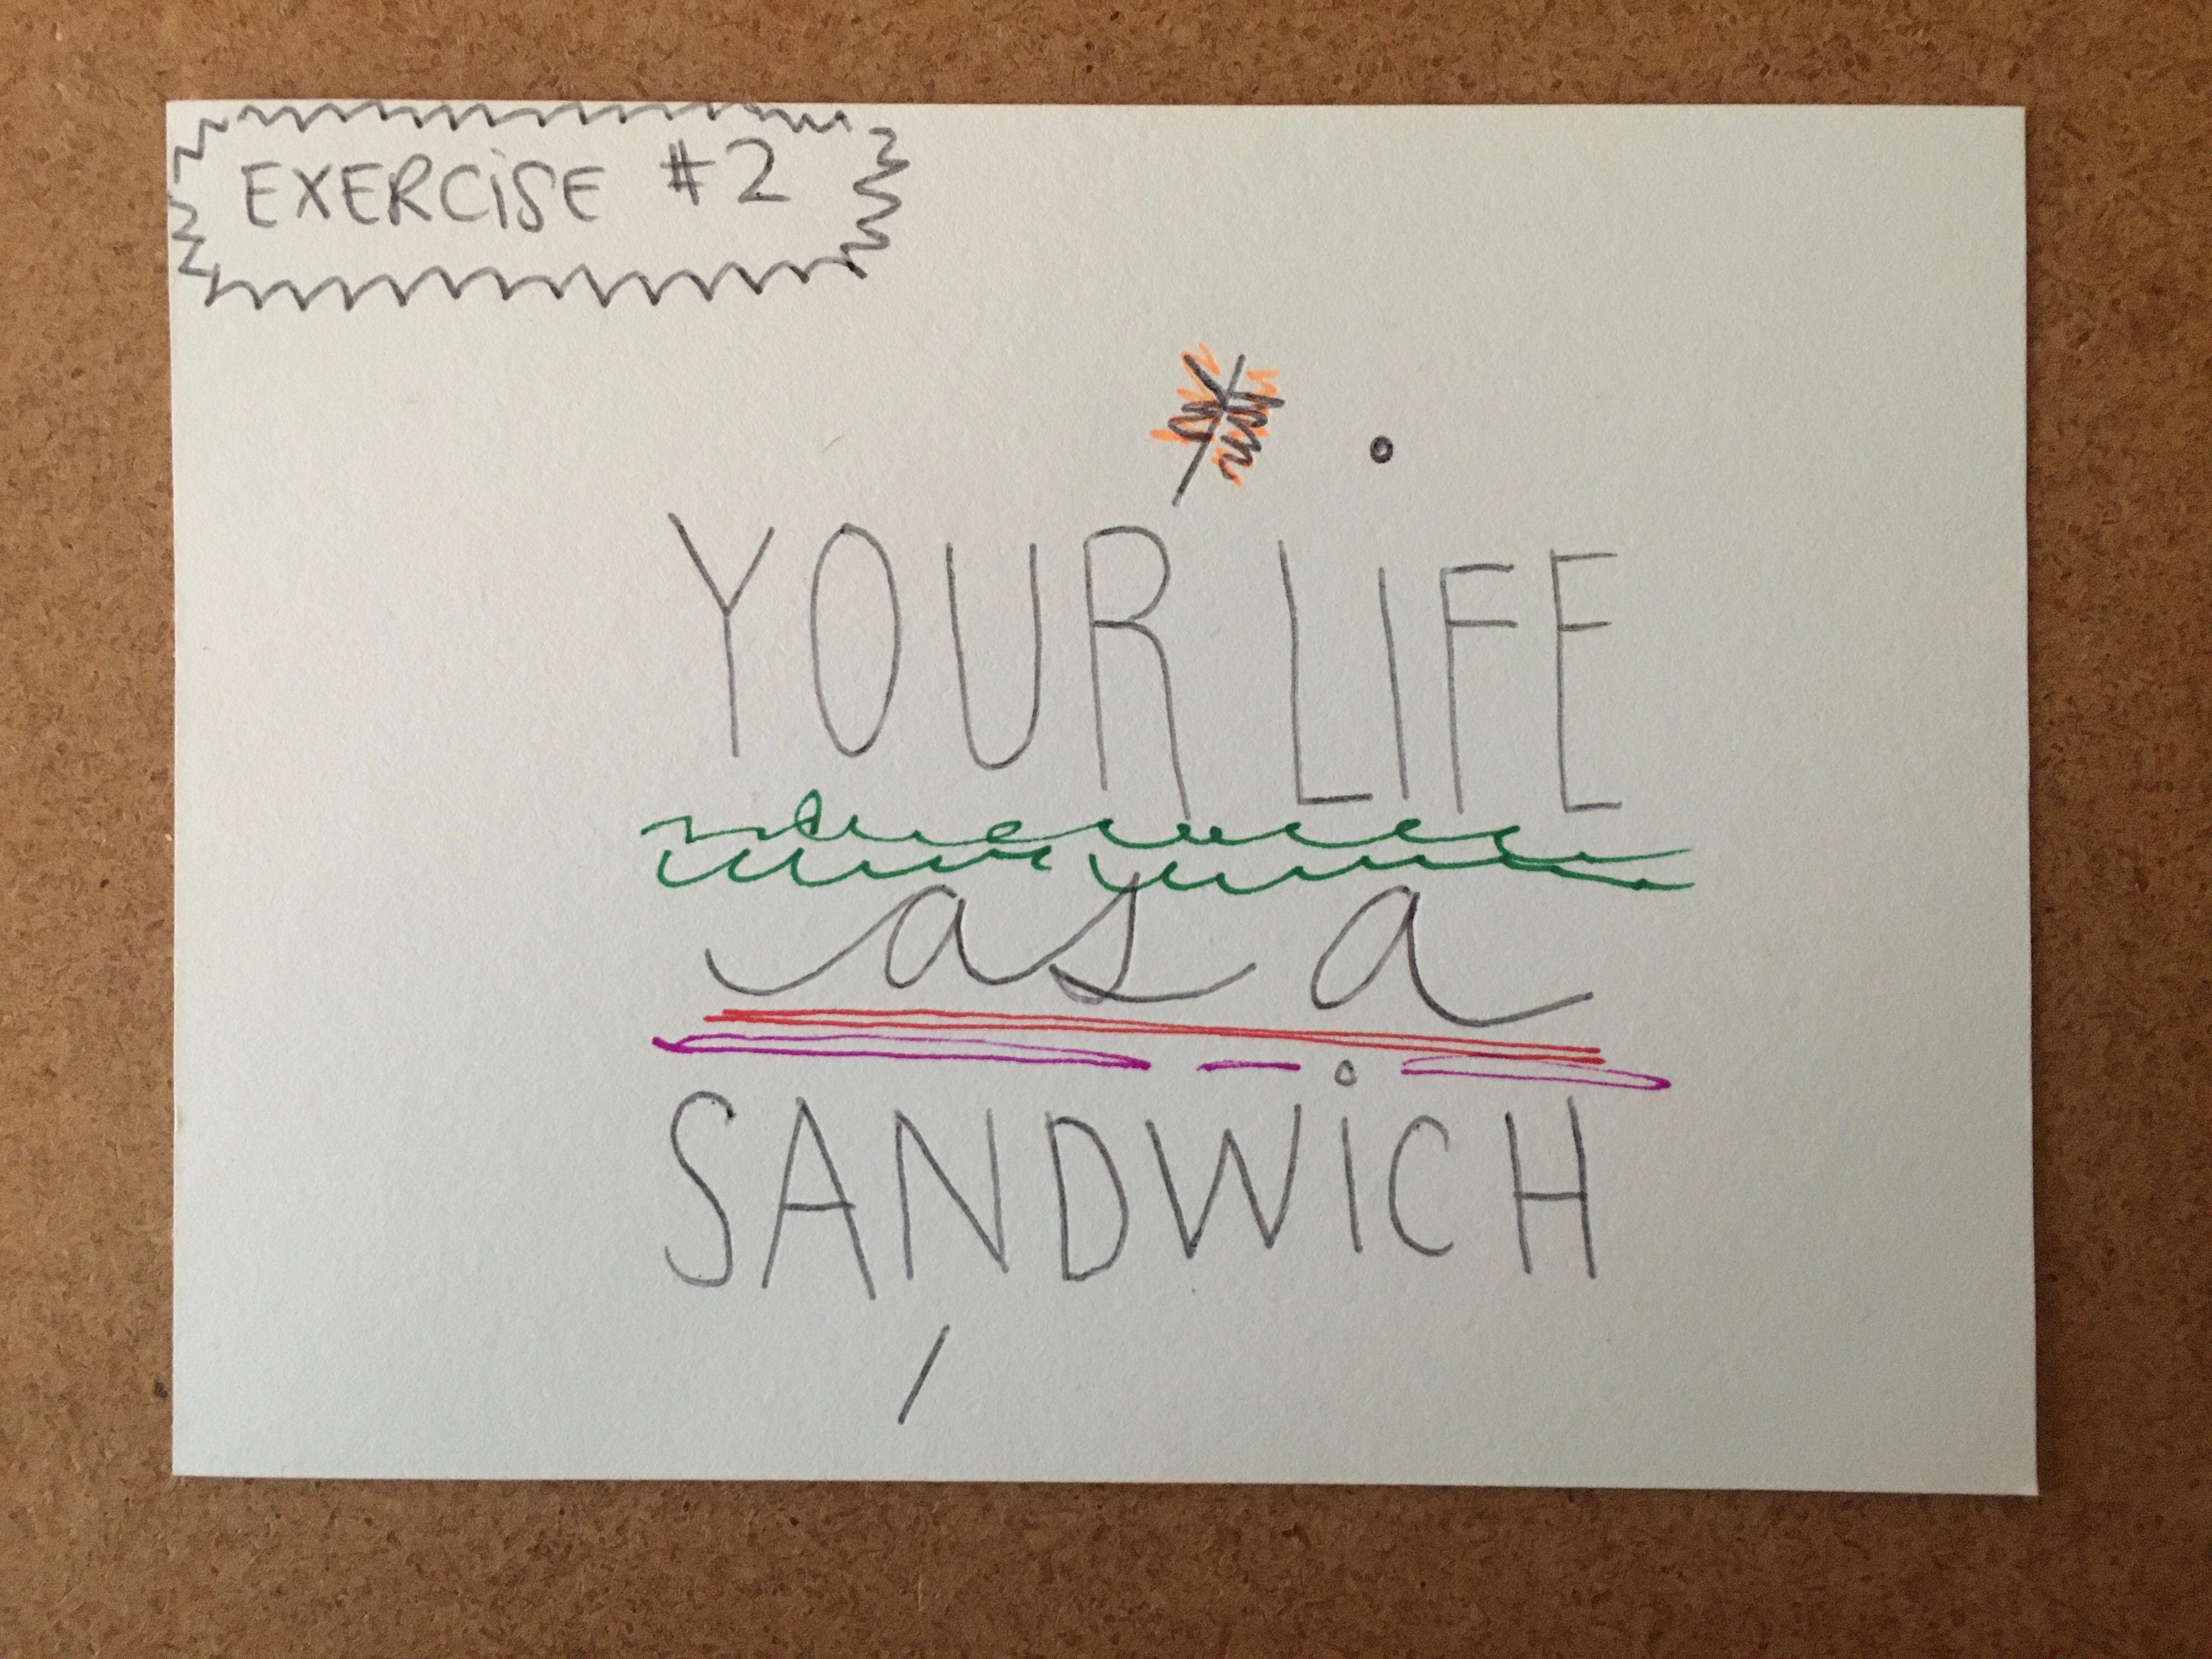 EXERCiSE #2
YOUR LiFE
as a
SANDWiCH